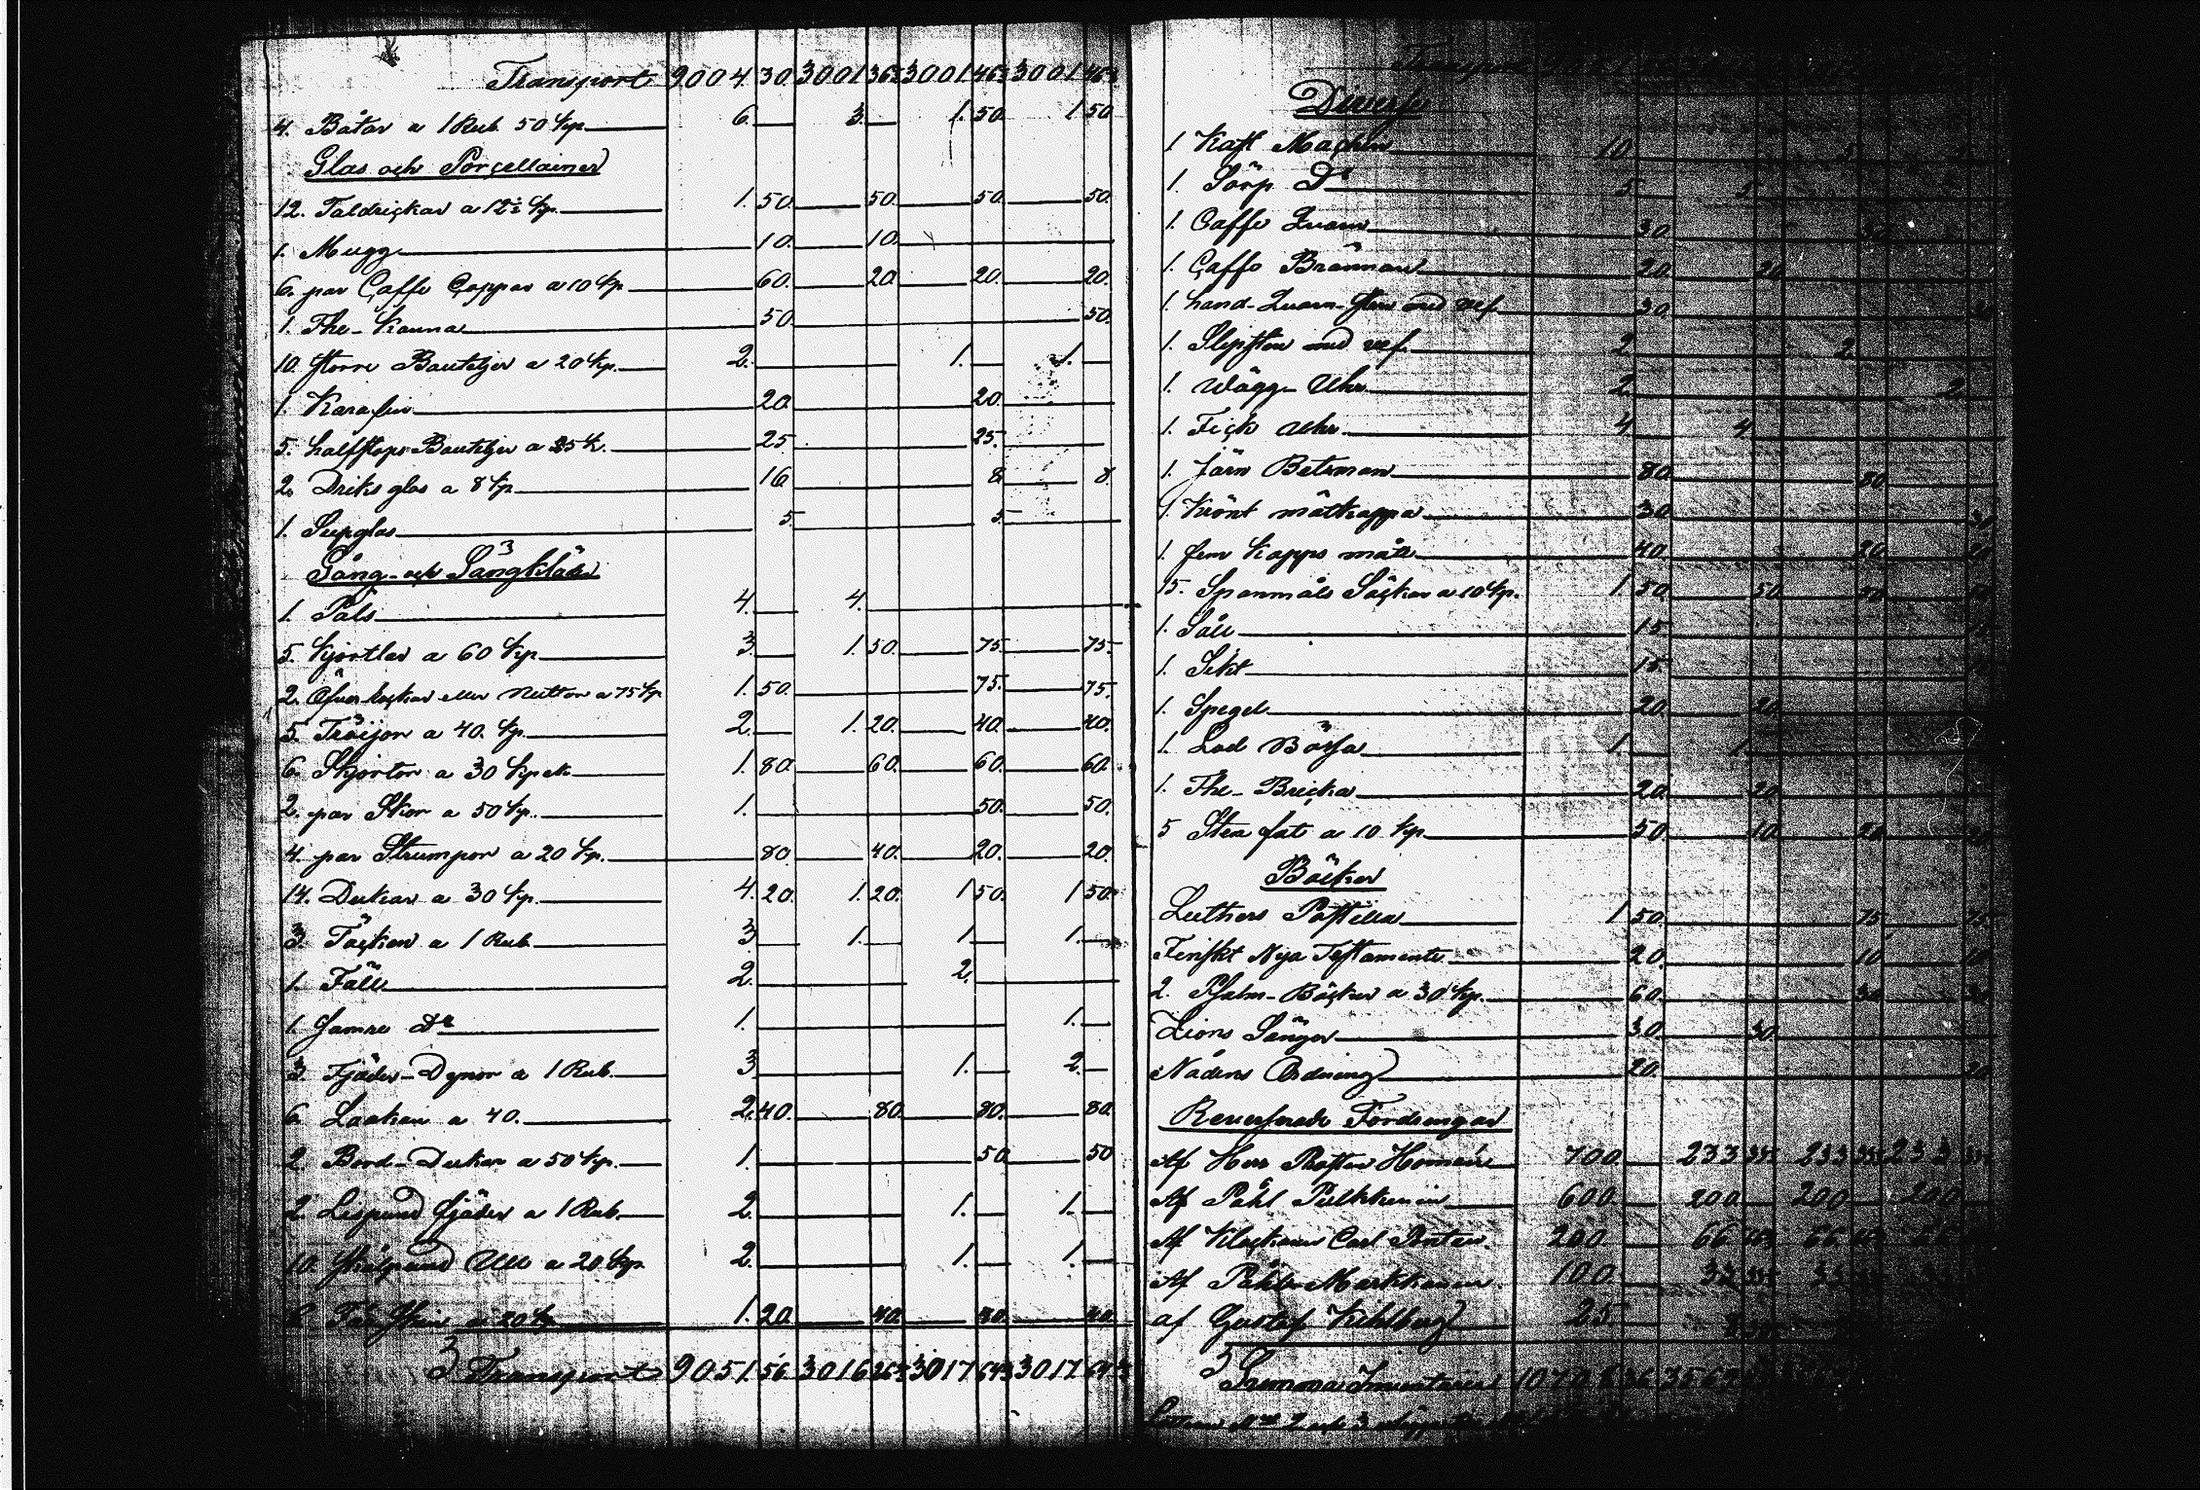 Transport 9004. 30. 3001 36⅔ 3001. 46⅔ 3001 46⅔
4. Båtar a 1 Rub. 50 kp. 6. — 3. — 1. 50. 1 50
Glas och Porcellainer
12. Taldrickar a 12½ kp. 1. 50. 50. 50. 50.
1. Mugg 10. 10.
6. par Caffe Coppar a 10 kp 60. 20. 20. 20.
1. The-Kanna 50. 50.
10. Storre Bouteljer a 20 kp. 2. 1. — 1. —
1. Karafin 20. 20.
5. halfstops Bouteljer a 25 k. 25. 25.
2. Driks glas a 8 kp 16 8. 8.
1. Supglas 5. 5.
Gång- och Sängkläder
1. Päls 4. — 4.
5. Kjortlar a 60 kp 3. — 1. 50. 75. 75.
2. eller a 75 kp 1. 50. 75. 75.
5. Tröijor a 40. kp. 2. — 1. 20. 40. 40.
6. Skjortor a 30 kpek 1. 80. 60. 60. 60.
2. par Skor a 50 kp. 1. 50. 50.
4. par Strumpor a 20 kp. 80. 40. 20. 20.
14. Dukar a 30 kp. 4. 20. 1. 20. 1 50. 1 50.
3. Täcken a 1 Rub. 3 — 1. — 1. — 1. —
1. Fäll 2. 2.
1. Samre Do 1. 1. —
3. Fjäder-Dynor a 1 Rub. 3. 1. — 2. —
6. Laakan a 40. 2. 40. 80. 80. 80.
2. Bord-Dukar a 50 kp. 1. 50 50
2. Lispund fjäder a 1 Rub. 2. 1. — 1. —
10. Skålpund Ull a 20 kp. 2. 1. — 1. —
6. Får Skin a 20 kp 1. 20. 40. 40. 40.
Transport 9051. 56. 3016 26⅔ 3017 64⅔ 3017 64⅔
Transport
Diverse
1 Kaff Machin 10.
1. Sörp Do 5. 5.
1. Caffe Quarn 30. 30
1. Caffe Brännare 20. 20
1. hand-Quarn-Sten med vef 30. 30
1. Slipsten med vef. 2. 2.
1. Wägg-Uhr 2. 2.
1. Fick Uhr 4 — 4.
1. Järn Betsman 80. 80.
1. Krönt måtkappa 30. 30
1. fem Kapps mått 40. 20. 20
15. Spanmåls Säckar a 10 kp. 1. 50. 50. 50. 50
1. Såll 15. 15
1. Sikt 15.
1. Spegel 20. 20.
1. Lod Bössa 1. — 1.
1. The-Bricka 20. 20.
5 Sten fat a 10. kp 50. 10. 20. 20
Böcker
Luthers Postilla 1 50. 75. 75
Finskt Nya Testamente 20. 10. 10
2. Psalm-Böcker a 30 kp. 60. 30. 30
Zions Sånger 30. 30.
Nådens Ordning 20. 20
Reverserade Fordringar
Af Herr Prosten Homén 700. — 233 33⅓ 233 33⅓ 233 33⅓
Af Påhl Pulkkinen 600. — 200. — 200 — 200.
Af Klockaren Carl Pontan. 200. — 66
Af Påhl Markkanen 100. 33
af Gustaf Kihlberg 25.
Summa Inventarium